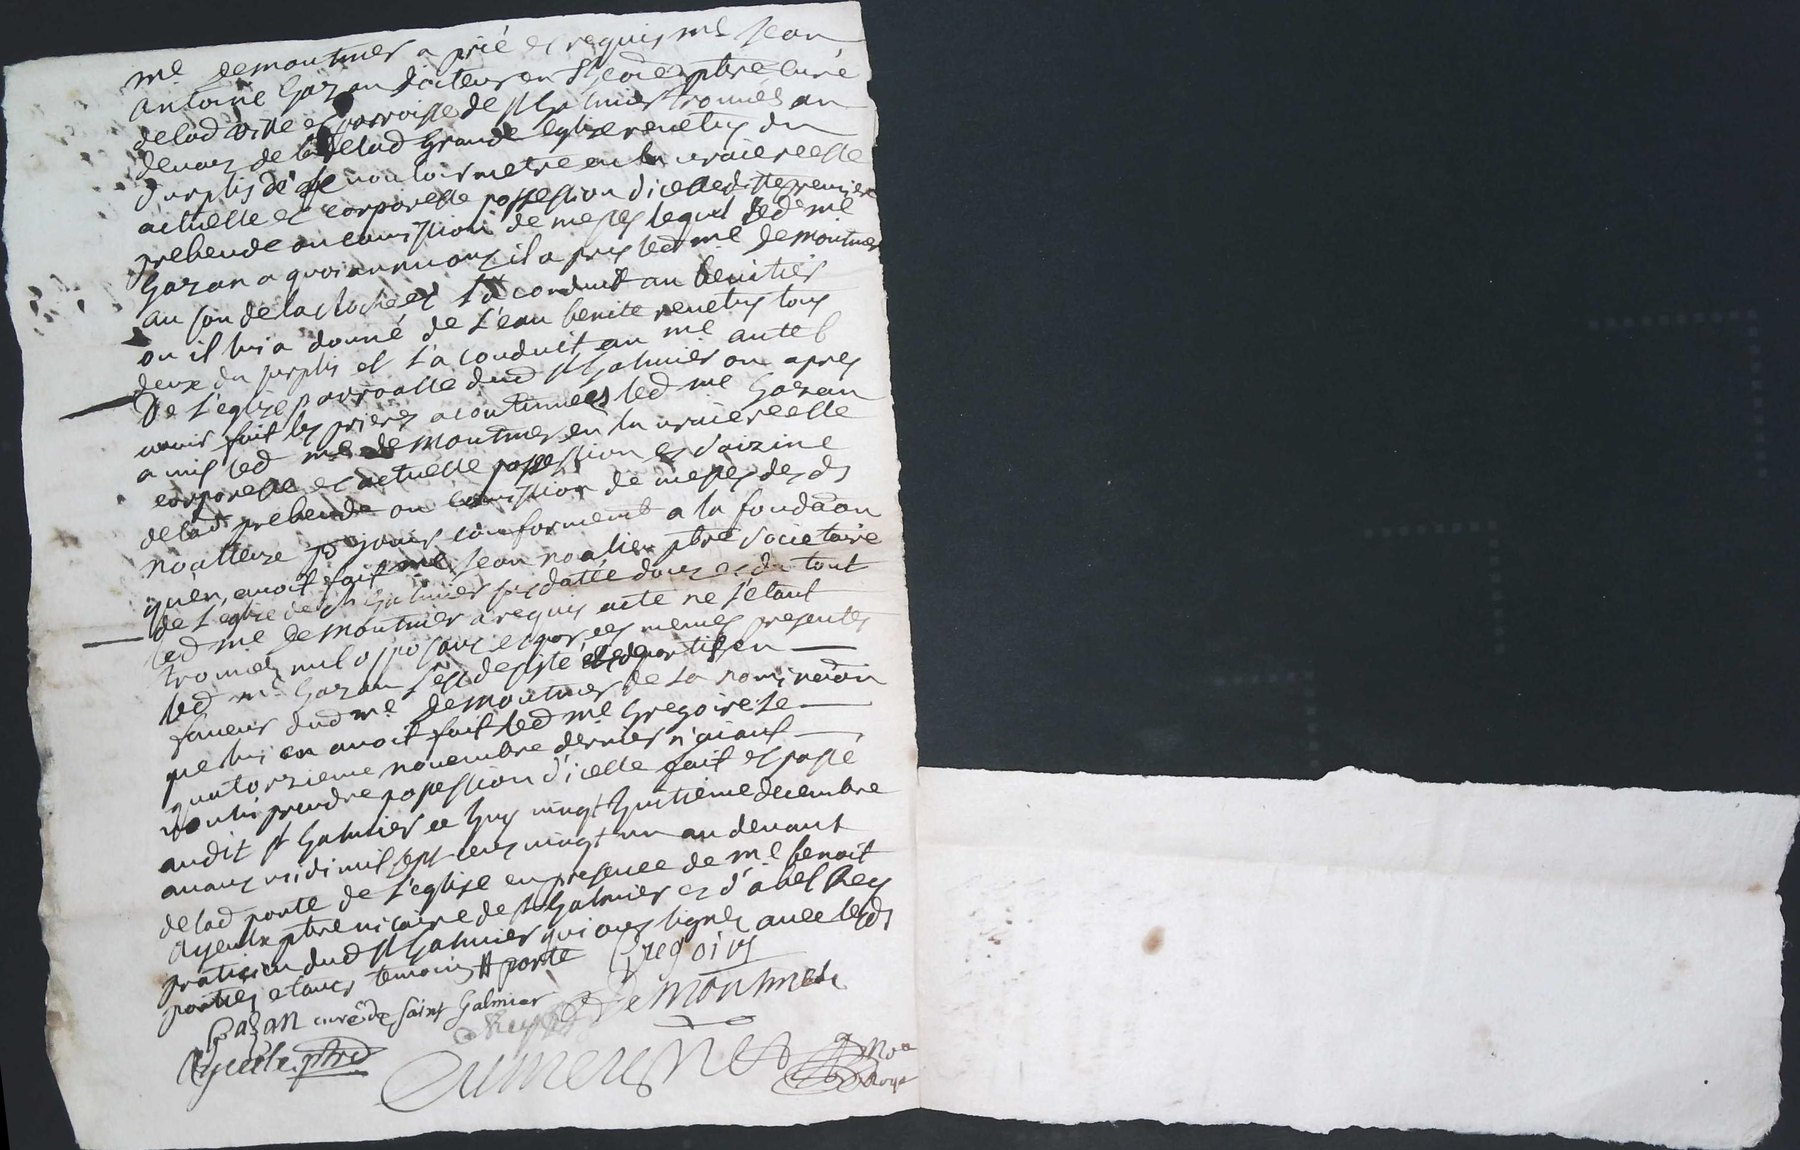 me demontmer a prié et requis me Jean
Antoine Gazan docteur en ptre curé
de lad ville et parroisse de st Galmier trouués au
deuant de lad grande eglise reuetus du
surplis de vouloir metre en la vraie reelle
actuelle et corporelle possession dicelle ditte premiere
prebende ou comission de messes lequel led me
Gazan a quoi il a pris led me demontmer
au son de la cloche et l'a conduit au benitier
ou il lui a donné de l'eau benite reuetus tous
deux du surplis et l'a conduit au me autel
de l'eglize parroalle dud st Galmier ou apres
auoir fait les prieres acoutumees led me Gazan
a mis led me demontmer en la vraie reelle
corporelle et actuelle possession et saizine
de lad prebende ou comission de messes des ds
conformemt a la fondaon
qu'en auoit fait me Jean noalier ptre societaire
de l'eglise de st Galmier datée et du tout
led me demontmer a requis acte ne s'etant
trouué nul oposant et par ces memes presentes
led me Gazan s'est desisté et departi en
faueur dud me demontmer de la nominaon
que lui en auoit fait led me Gregoire le
quatorzieme nouembre dernier n'aiant
voulu prendre possession d'icelle fait et passé
audit st Galmier ce huy vingt huitieme decembre
auant midi mil sept cens vingt un au deuant
de lad porte de l'eglise en presence de me benoit
ptre vicaire de st Galmier et d'abel Rey
praticien dud st Galmier qui ont signés auec lesds
parties temoins # porte Gregoire
Gazan curé de saint Galmier Demontmer
ptre